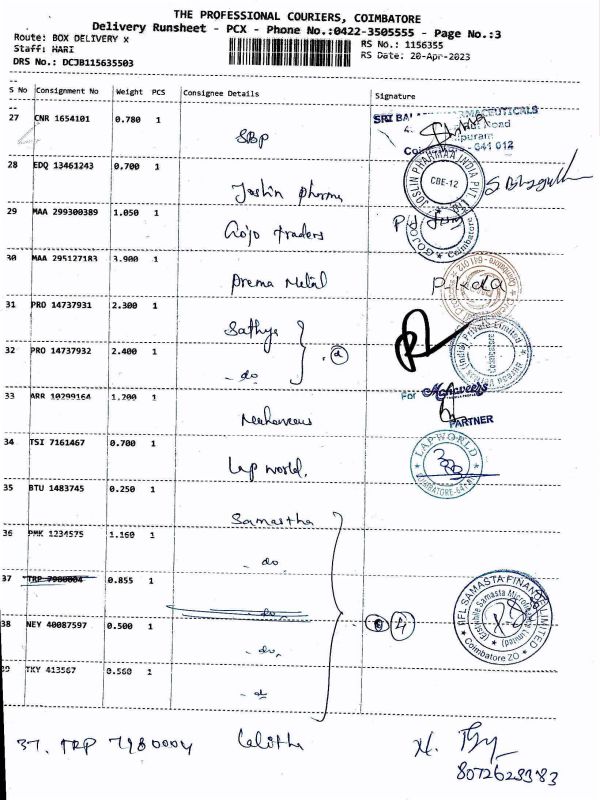 THE PROFESSIONAL COURIERS, COIMBATORE
Delivery Runsheet - PCX - Phone No.:0422-3505555 - Page No.:3
Route: BOX DELIVERY x
RS No.: 1156355
Staff: HARI
RS Date: 20-Apr-2023
DRS No.: DCJB115635503
S No Consignment No Weight PCS Consignee Details Signature
27 CNR 1654101 0.780 1 SBP
SRI BALA PHARMACEUTICALS
Road
puram
Coimbatore - 641 012
28 EDQ 13461243 0.700 1 Joslin pharma
JOSLIN PHARMAA INDIA PVT LTD
CBE-12
29 MAA 299300389 1.050 1 Gojo traders
GOJO
Coimbatore
30 MAA 295127183 3.900 1 Prema Metal
Coimbatore - 641 012
31 PRO 14737931 2.300 1 Sathya
(India) Private Limited
Coimbatore
32 PRO 14737932 2.400 1 - do
33 ARR 10299164 1.200 1
For Mahaveers
PARTNER
34 TSI 7161467 0.700 1 Lap world.
LAPWORLD
35 BTU 1483745 0.250 1 Samastha
36 PMK 1234575 1.160 1 - do
37 TRP 7980004 0.855 1 - do
IIFL SAMASTA FINANCE LIMITED
Coimbatore ZO
38 NEY 40087597 0.500 1 - do, 4
39 TKY 413567 0.560 1 - do
37. TRP 7980004 Lalitha
8072628383